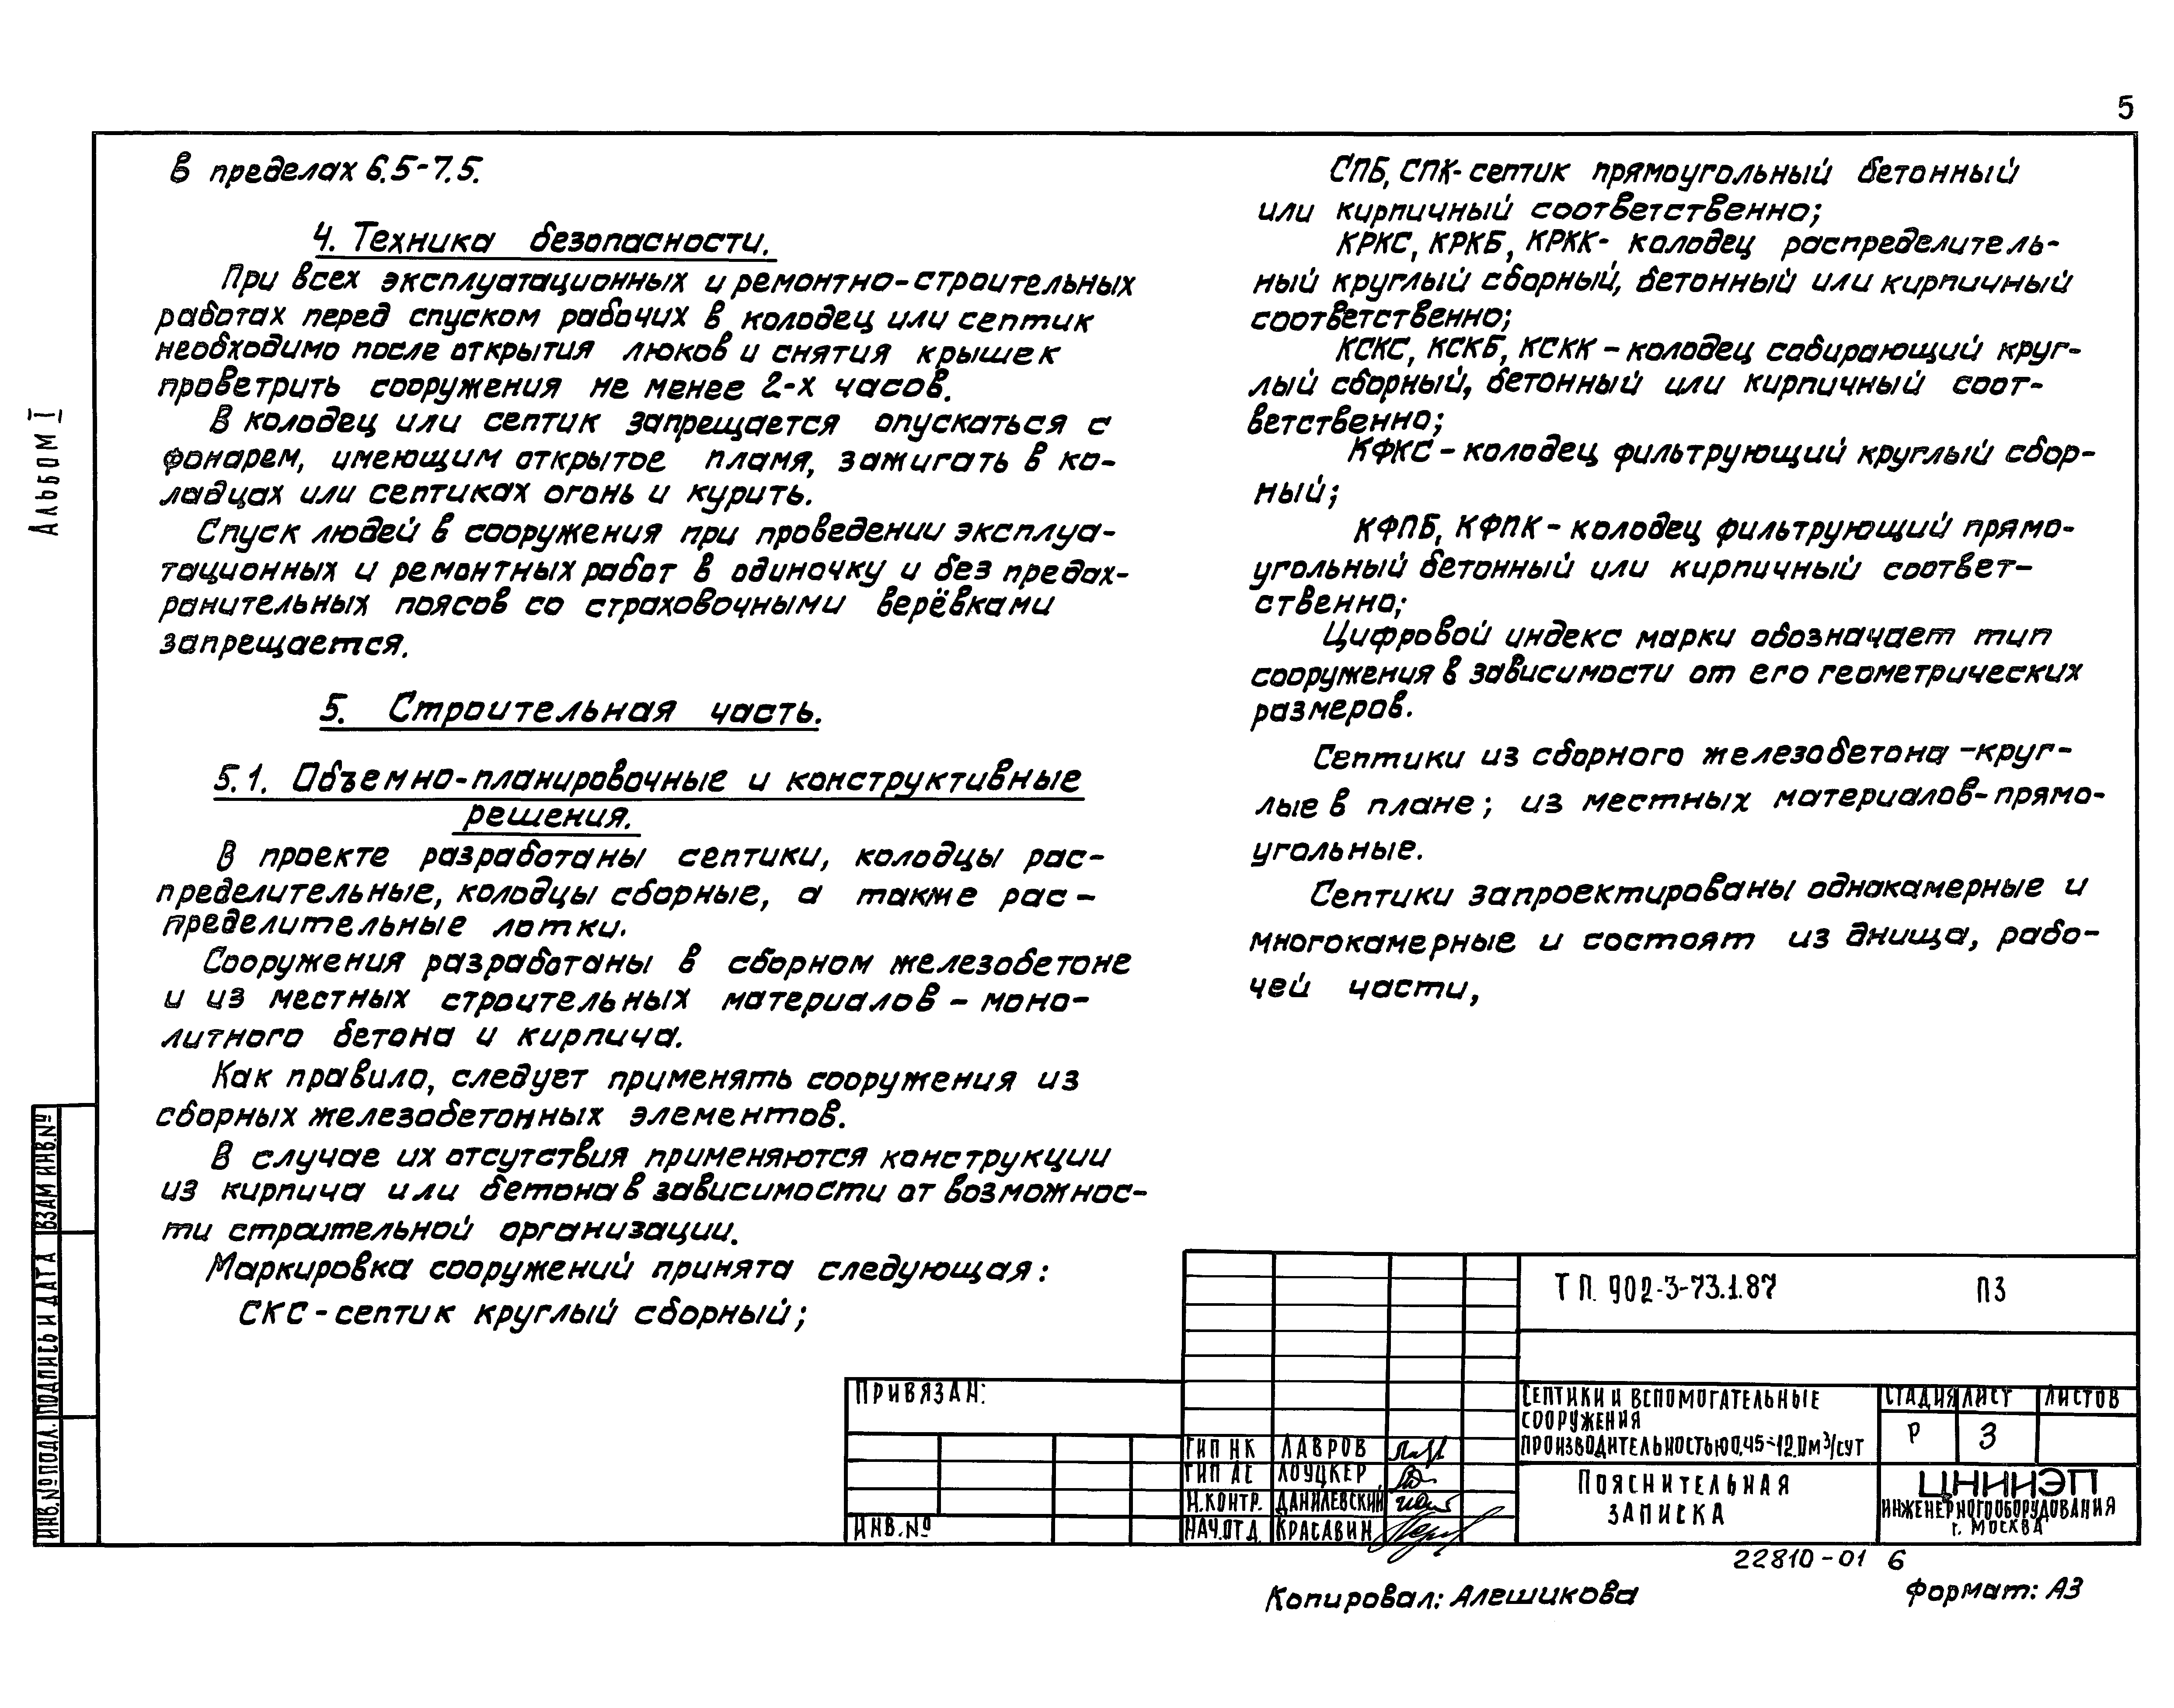 5
Альбом I
в пределах 6.5-7.5.
4. Техника безопасности.
При всех эксплуатационных и ремонтно-строительных
работах перед спуском рабочих в колодец или септик
необходимо после открытия люков и снятия крышек
проветрить сооружения не менее 2-х часов.
В колодец или септик запрещается опускаться с
фонарем, имеющим открытое пламя, зажигать в ко-
лодцах или септиках огонь и курить.
Спуск людей в сооружения при проведении эксплуа-
тационных и ремонтных работ в одиночку и без предох-
ранительных поясов со страховочными верёвками
запрещается.
5. Строительная часть.
5.1. Объемно-планировочные и конструктивные
решения.
В проекте разработаны септики, колодцы рас-
пределительные, колодцы сборные, а также рас-
пределительные лотки.
Сооружения разработаны в сборном железобетоне
и из местных строительных материалов - моно-
литного бетона и кирпича.
Как правило, следует применять сооружения из
сборных железобетонных элементов.
В случае их отсутствия применяются конструкции
из кирпича или бетона в зависимости от возможнос-
ти строительной организации.
Маркировка сооружений принята следующая:
СКС - септик круглый сборный;
СПБ, СПК - септик прямоугольный бетонный
или кирпичный соответственно;
КРКС, КРКБ, КРКК - колодец распределитель-
ный круглый сборный, бетонный или кирпичный
соответственно;
КСКС, КСКБ, КСКК - колодец собирающий круг-
лый сборный, бетонный или кирпичный соот-
ветственно;
КФКС - колодец фильтрующий круглый сбор-
ный;
КФПБ, КФПК - колодец фильтрующий прямо-
угольный бетонный или кирпичный соответ-
ственно;
Цифровой индекс марки обозначает тип
сооружения в зависимости от его геометрических
размеров.
Септики из сборного железобетона - круг-
лые в плане; из местных материалов - прямо-
угольные.
Септики запроектированы однокамерные и
многокамерные и состоят из днища, рабо-
чей части,
ВЗАМ ИНВ.№
ПОДПИСЬ И ДАТА
ИНВ.№ПОДЛ.
ПРИВЯЗАН:
ИНВ.№
ГИП НК ЛАВРОВ
ГИП АС ЛОУЦКЕР
Н.КОНТР. ДАНИЛЕВСКИЙ
НАЧ.ОТД. КРАСАВИН
ТП. 902-3-73.1.87 ПЗ
СЕПТИКИ И ВСПОМОГАТЕЛЬНЫЕ
СООРУЖЕНИЯ
ПРОИЗВОДИТЕЛЬНОСТЬЮ 0,45÷12.0м³/СУТ
СТАДИЯ ЛИСТ ЛИСТОВ
Р 3
ПОЯСНИТЕЛЬНАЯ
ЗАПИСКА
ЦНИИЭП
ИНЖЕНЕРНОГО ОБОРУДОВАНИЯ
г. МОСКВА
22810-01 6
Копировал: Алешикова
Формат: А3